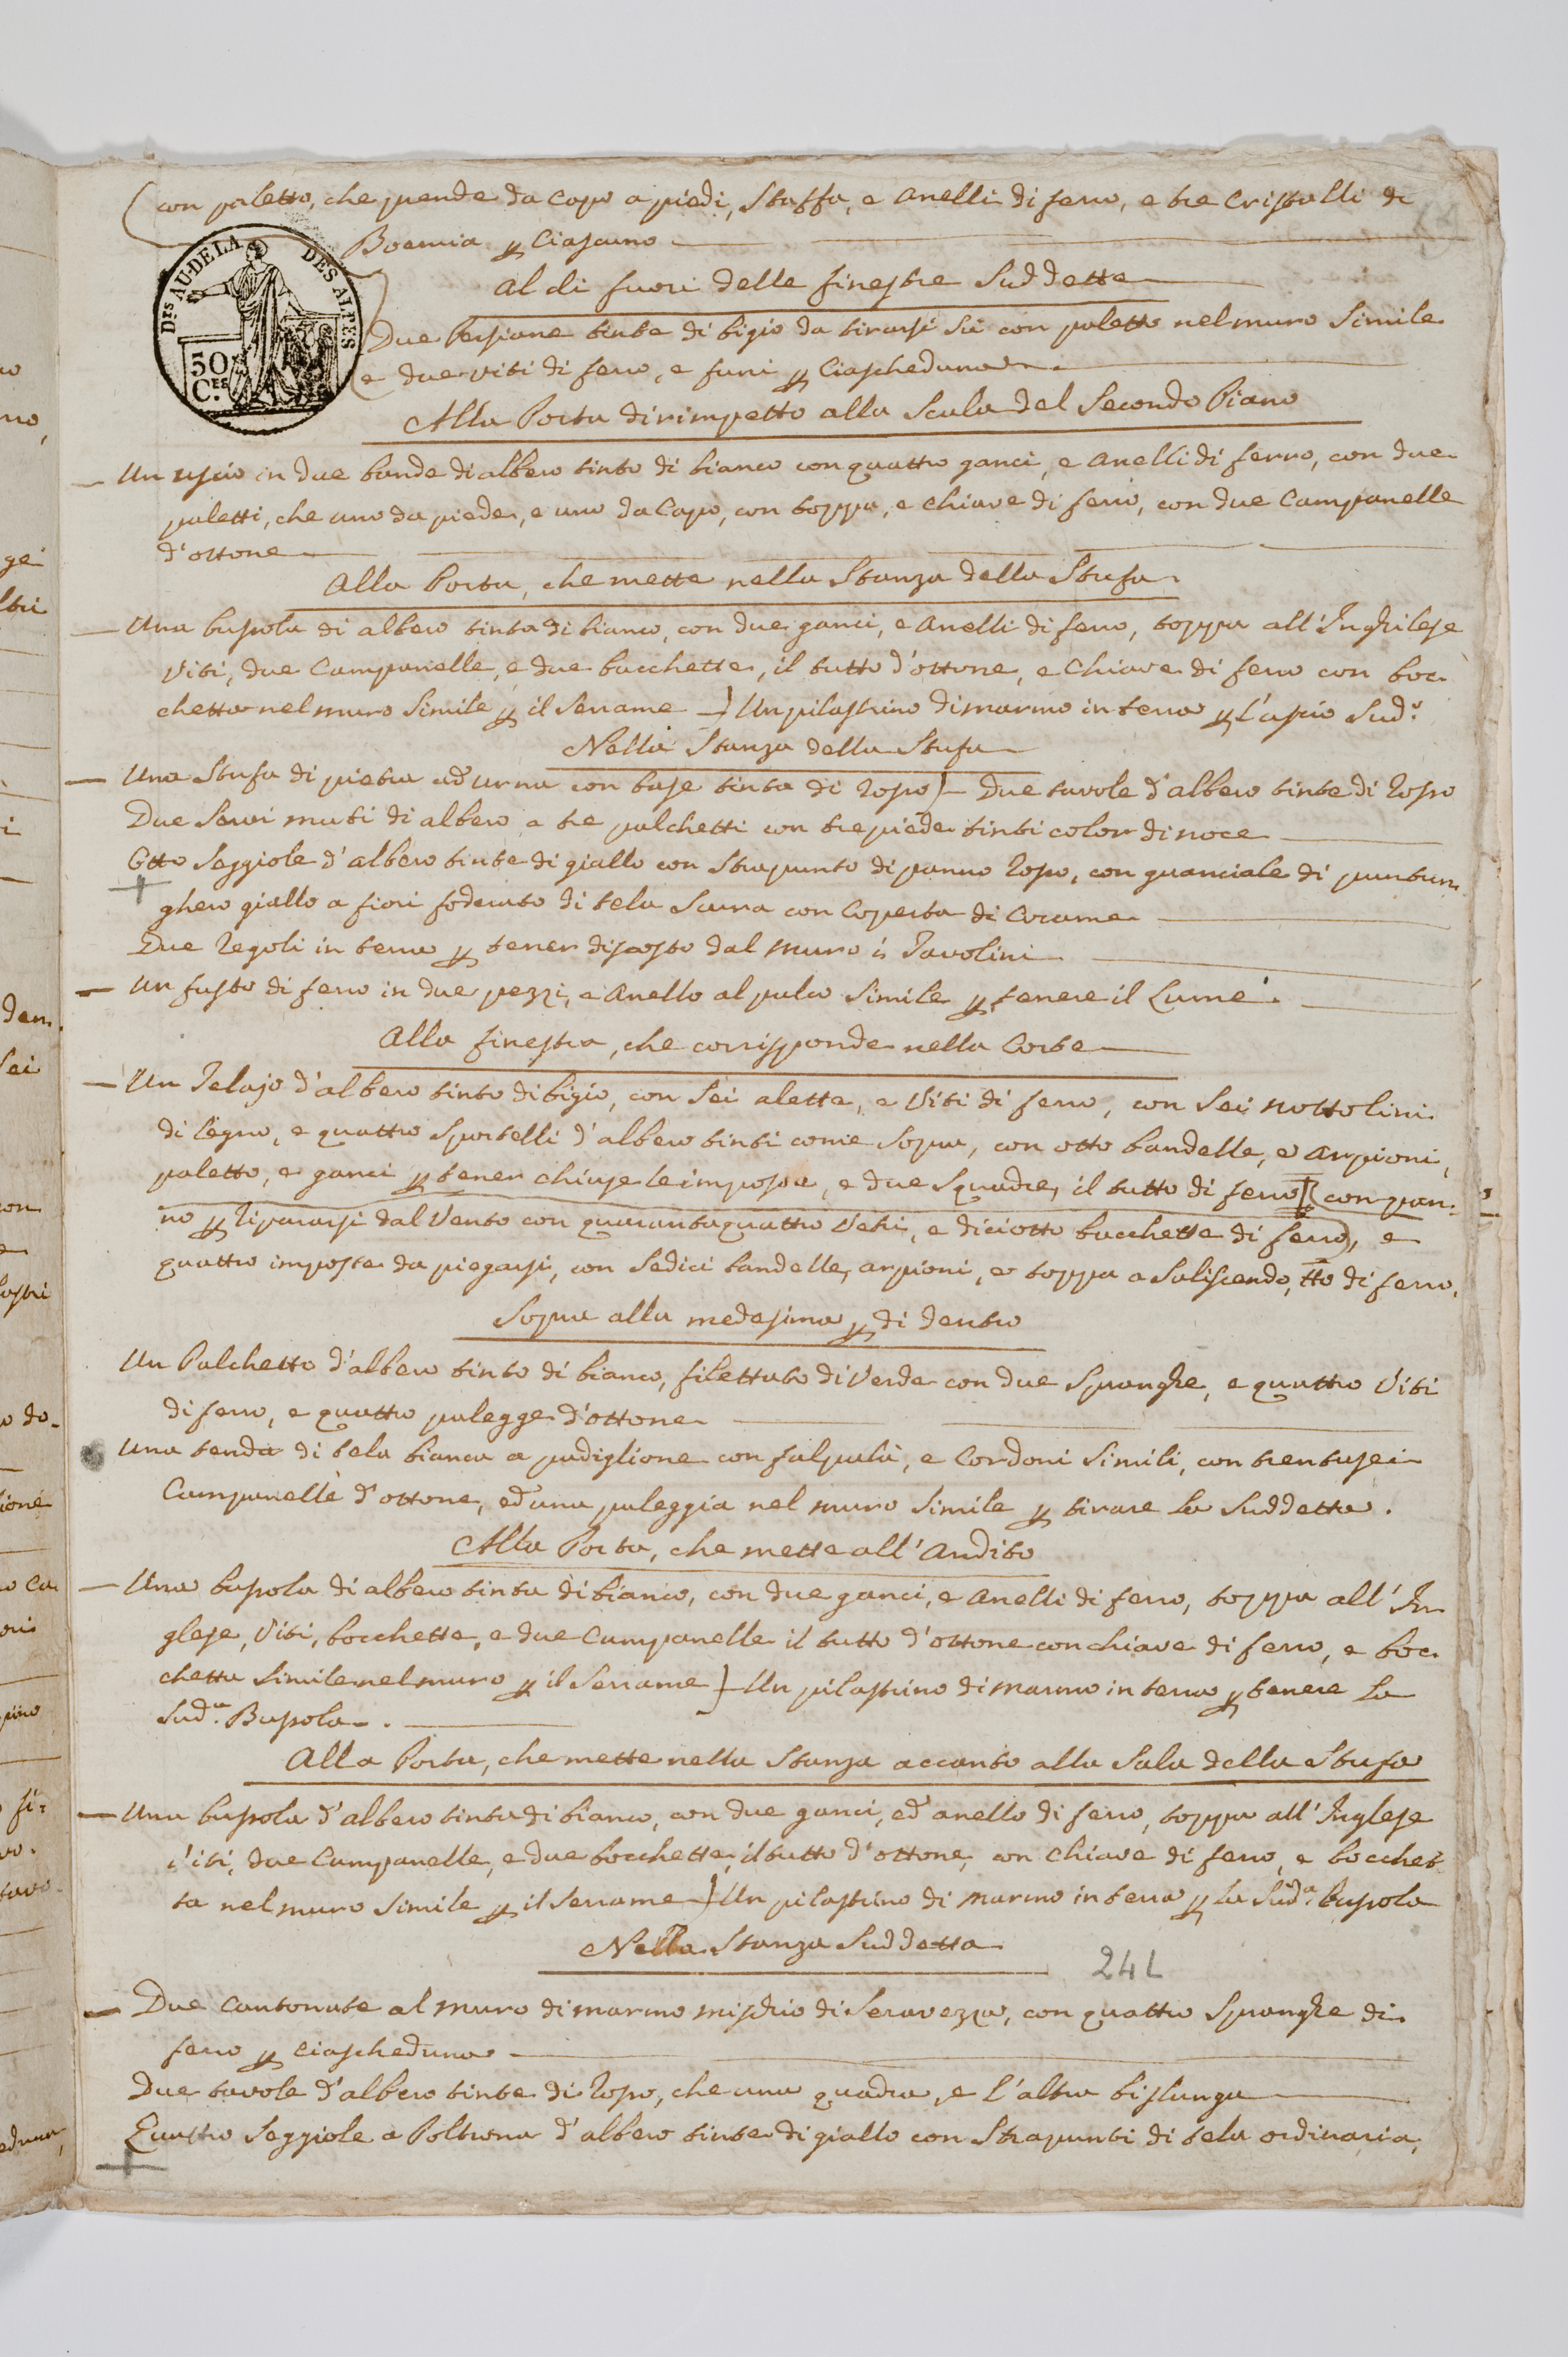 con paletto, che prende da Capo a piedi, Staffa, e Anelli di ferro, e tre Cristalli di
Boemia p Ciascuno
DES AU-DE LA DES ALPES
50 CES
al di fuori delle finestre Suddette
Due Persiane tinte di bigio da tirarsi Sù con paletto nel muro Simile
e due viti di ferro, e funi p Ciascheduna
Alla Porta dirimpetto alla Scala del Secondo Piano
Un uscio in due bande di albero tinto di bianco con quattro ganci, e Anelli di ferro, con due
paletti, che uno da piede, e uno da Capo, con toppa, e Chiave di ferro, con due Campanelle
d'ottone
Alla Porta, che mette nella Stanza della Stufa
Una bussola di albero tinta di bianco, con due ganci, e Anelli di ferro, toppa all'Inghilese
Viti, due Campanelle, e due bocchette, il tutto d'ottone, e Chiave di ferro con boc-
chetta nel muro Simile p il Serrame Un pilastrino di marmo in terra p l'uscio Sud.o
Nella Stanza della Stufa
Una Stufa di pietra ad urna con base tinta di rosso Due tavole d'albero tinte di rosso
Due Servi muti di albero a tre palchetti con tre piede tinti color di noce
Otto Seggiole d'albero tinte di giallo con Strapunto di panno rosso, con guanciale di
ghero giallo a fiori foderato di tela Scura con Coperta di Corame
Due regoli in terra p tener discosto dal muro i Tavolini
Un fusto di ferro in due pezzi, e Anello al palco Simile p tenere il Lume
Alla finestra, che corrisponde nella Corte
Un Telajo d'albero tinto di bigio, con Sei alette, e Viti di ferro, con Sei nottolini
di legno, e quattro Sportelli d'albero tinti come Sopra, con otto bandelle, e arpioni,
paletto, e ganci p tener chiuse le imposte, e due Squadre, il tutto di ferro con pan-
no p ripararsi dal Vento con quarantaquattro Vetri, e diciotto bacchette di ferro, e
quattro imposte da piegarsi, con Sedici bandelle, arpioni, e toppa a Saliscendo, tto di ferro.
Sopra alla medesima p di dentro
Un Palchetto d'albero tinto di bianco, filettato di Verde con due Spranghe, e quattro Viti
di ferro, e quattro pulegge d'ottone
Una tenda di tela bianca a padiglione con falpalà, e Cordoni Simili, con trentasei
Campanelle d'ottone, ed una puleggia nel muro Simile p tirare la Suddetta.
Alla Porta, che mette all'Andito
Una bussola di albero tinta di bianco, con due ganci, e Anelli di ferro, toppa all'In
glese, Viti, bocchette, e due Campanelle il tutto d'ottone con chiave di ferro, e boc-
chetta Simile nel muro p il Serrame Un pilastrino di marmo in terra p tenere la
Sud.a Bussola.
Alla Porta, che mette nella Stanza accanto alla Sala della Stufa
Una bussola d'albero tinta di bianco, con due ganci, ed anello di ferro, toppa all'Inglese
Viti, due Campanelle, e due bocchette, il tutto d'ottone, con Chiave di ferro, e bocchet-
ta nel muro Simile p il Serrame Un pilastrino di marmo in terra p la Sud.a bussola
Nella Stanza Suddetta
241
Due Cantonate al muro di marmo mischio di Seravezza, con quattro Spranghe di
ferro p ciascheduna
Due tavole d'albero tinte di rosso, che una quadra, e l'altra bislunga
Quattro Seggiole a Poltrona d'albero tinte di giallo con Strapunti di tela ordinaria,